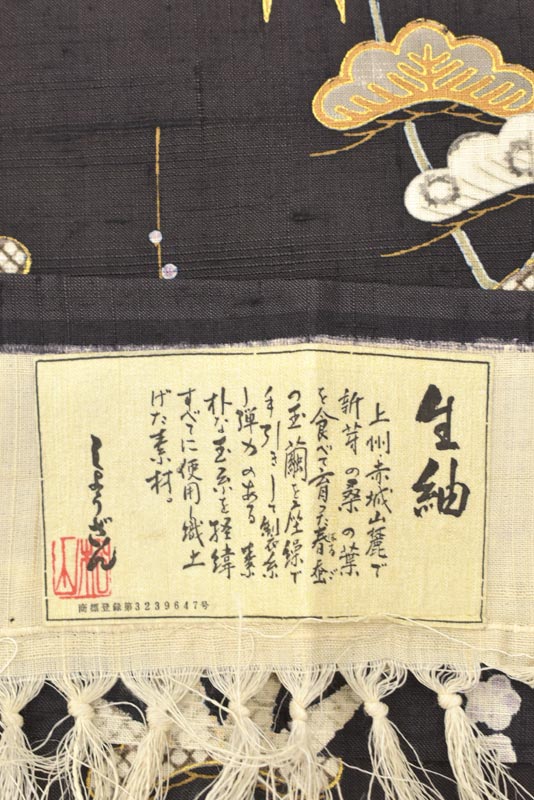 生紬
上州赤城山麓で
新芽の桑の葉
を食べて育った春蚕
はるご
の玉繭を座繰で
手引きして製糸
し弾力のある素
朴な玉糸を経緯
すべてに使用し織上
げた素材。
しょうざん
松山
商標登録第3239647号